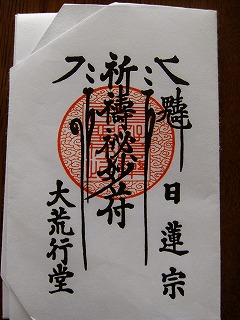 日蓮宗
祈祷秘妙符
大荒行堂